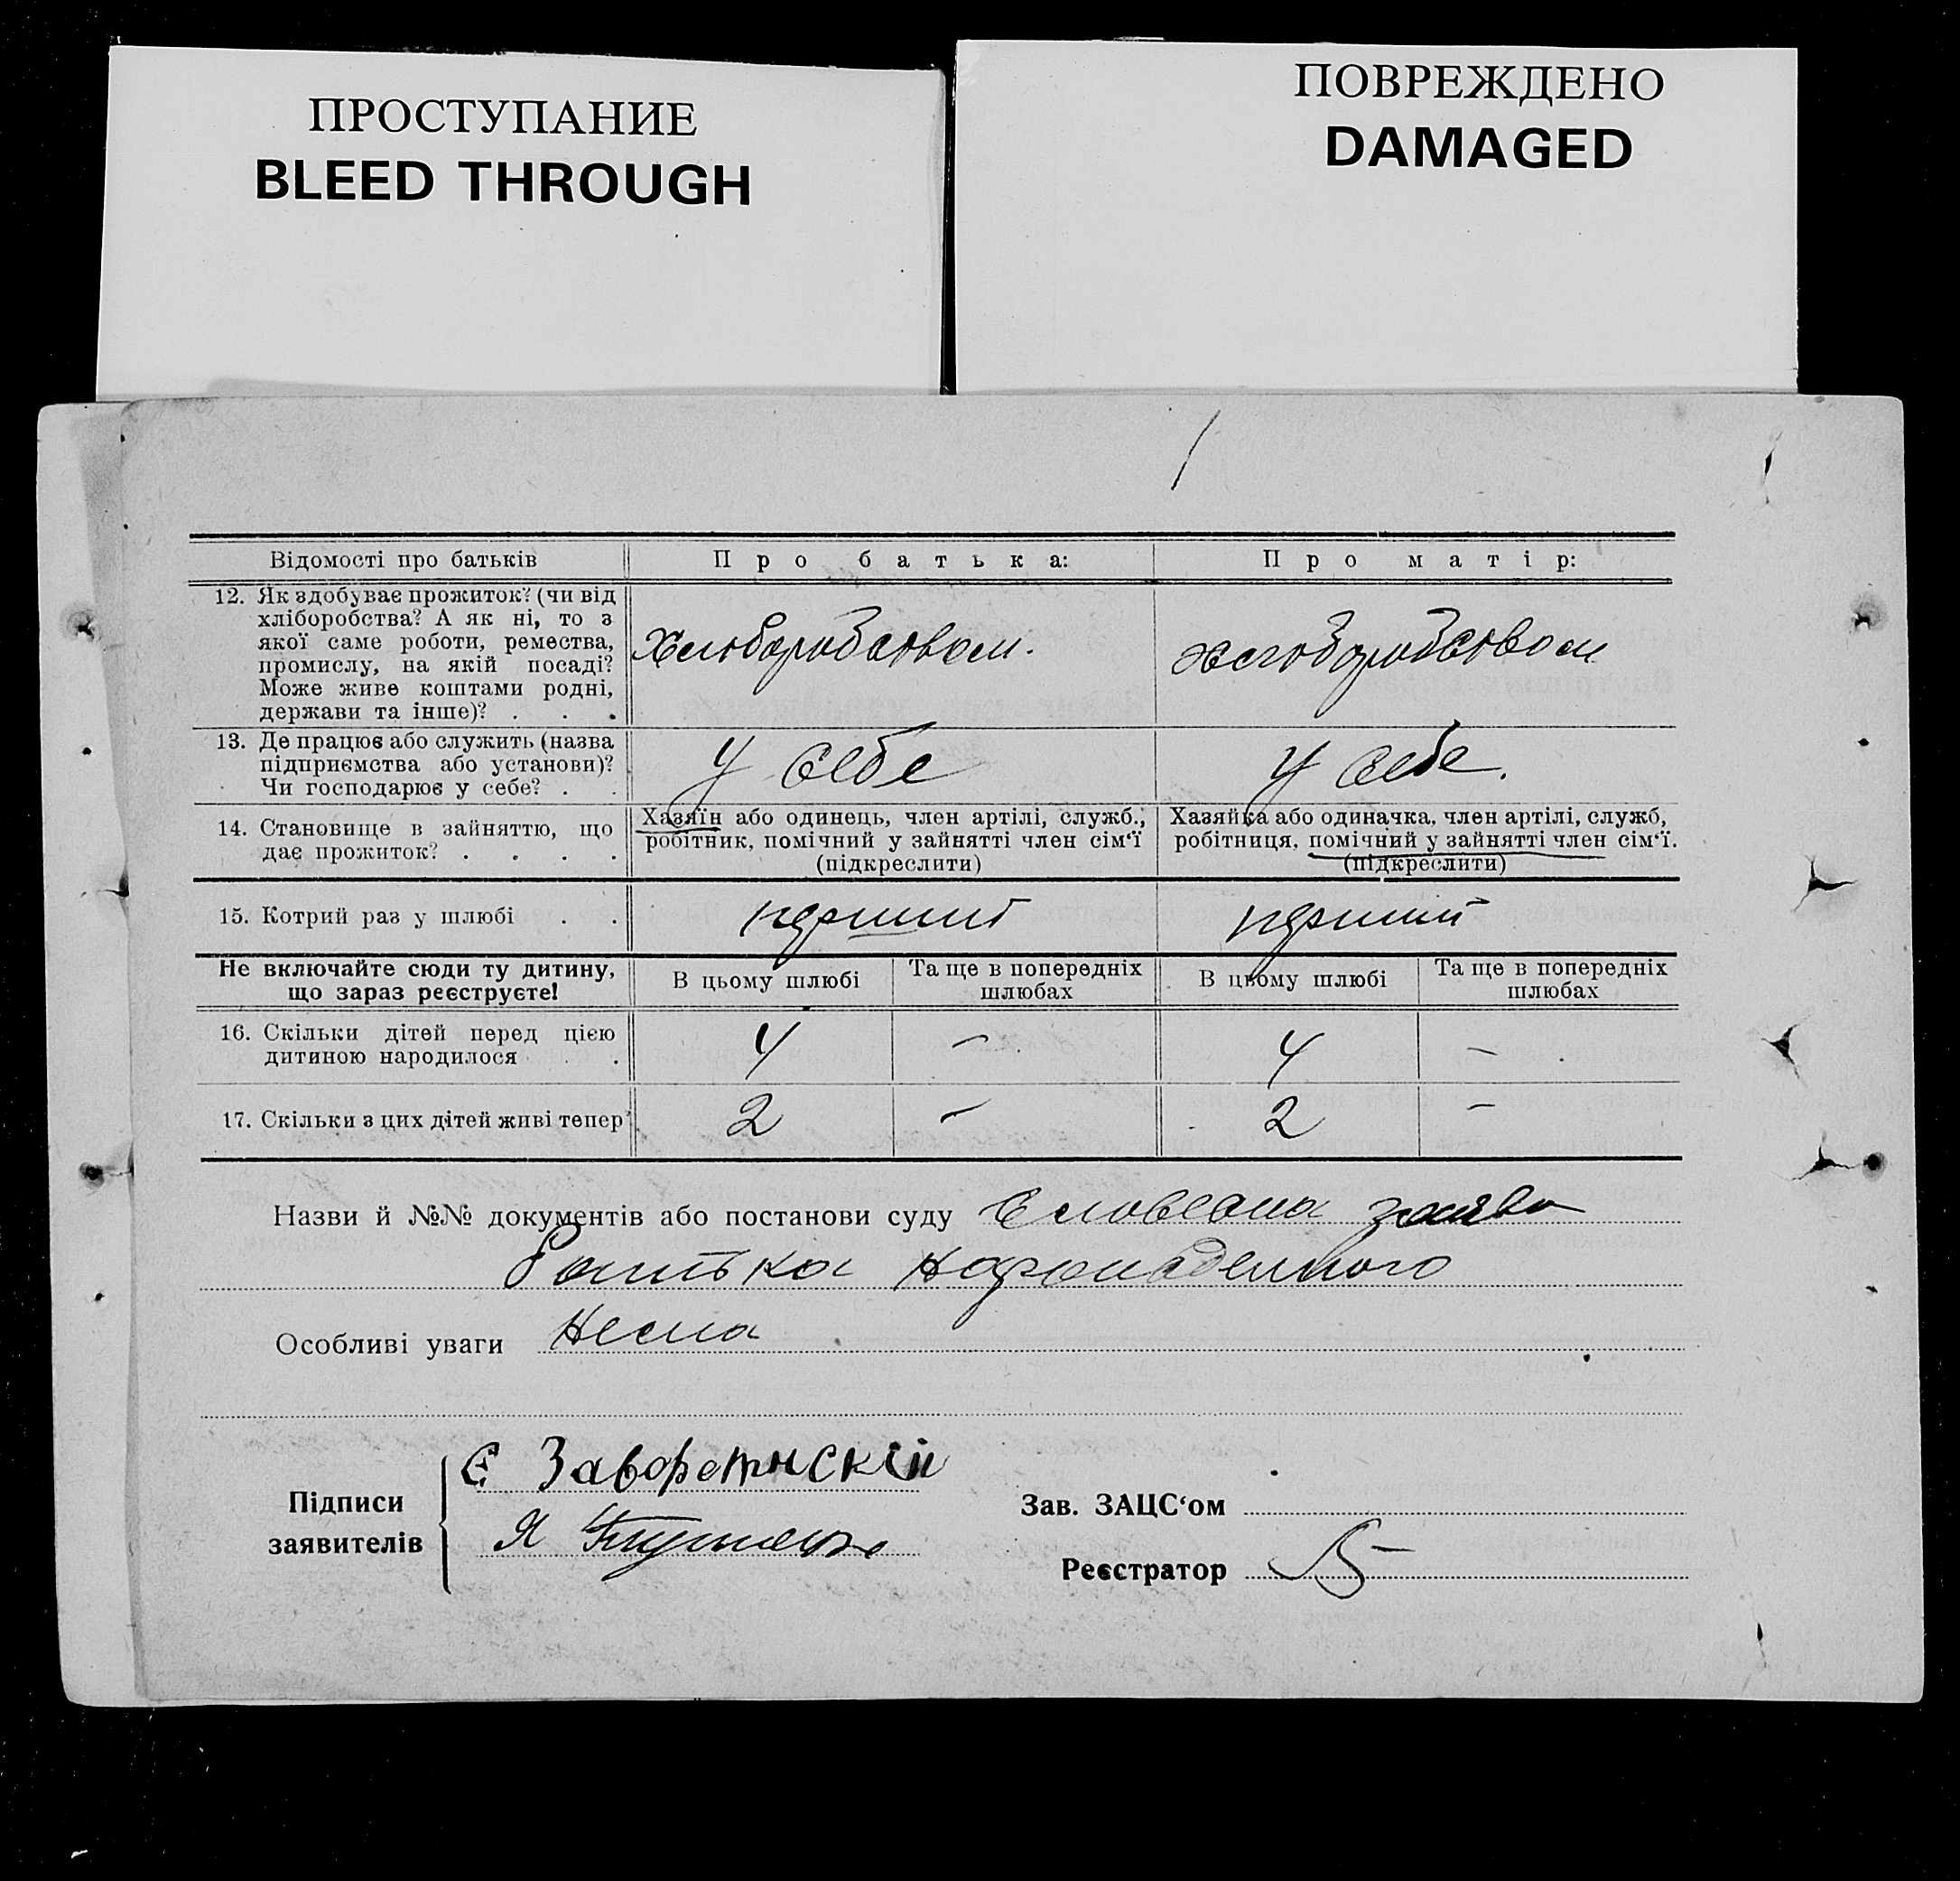 ПРОСТУПАНИЕ
BLEED THROUGH
ПОВРЕЖДЕНО
DAMAGED
Відомості про батьків
Про батька:
Про матір:
12. Як здобуває прожиток? (чи від
хліборобства? А як ні, то з
якої саме роботи, ремества,
промислу, на якій посаді?
Може живе коштами родні,
держави та інше)? . . .
Хліборобством.
хліборобством
13. Де працює або служить (назва
підприємства або установи)?
Чи господарює у себе? . .
У себе
У себе.
14. Становище в зайняттю, що
дає прожиток? . . . .
Хазяїн або одинець, член артілі, служб.,
робітник, помічний у зайнятті член сім‘ї
(підкреслити)
Хазяйка або одиначка, член артілі, служб,
робітниця, помічний у зайнятті член сім‘ї.
(підкреслити)
15. Котрий раз у шлюбі . .
перший
перший
Не включайте сюди ту дитину,
що зараз реєструєте!
В цьому шлюбі
Та ще в попередніх
шлюбах
В цьому шлюбі
Та ще в попередніх
шлюбах
16. Скільки дітей перед цією
дитиною народилося . .
4 – 4 –
17. Скільки з цих дітей живі тепер?
2 – 2 –
Назви й №№ документів або постанови суду Словесна заява
батька народженого
Особливі уваги Нема
Підписи
заявителів
Є Заворотнскій
Я
Зав. ЗАЦС‘ом
Реєстратор